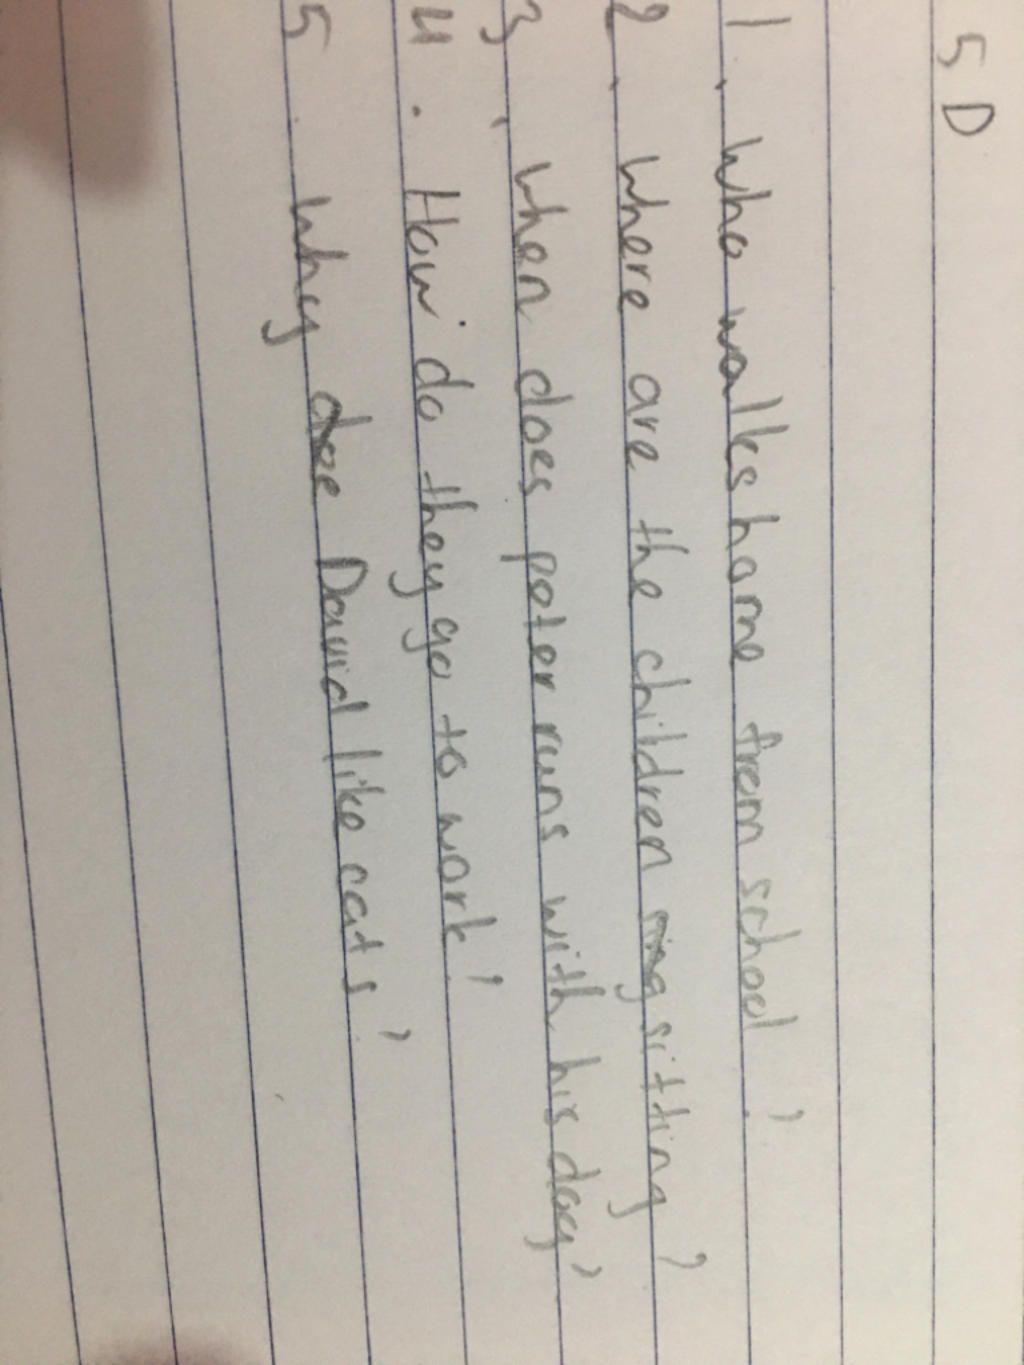 5 D
1. who walks home from school?
2. where are the children sitting?
3. when does peter runs with his dog?
4. How do they go to work?
5. why doe David like cats?